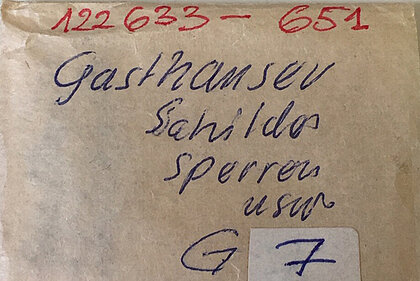 122 633 - 651
Gasthäuser
Schilder
Sperren
usw
G 7